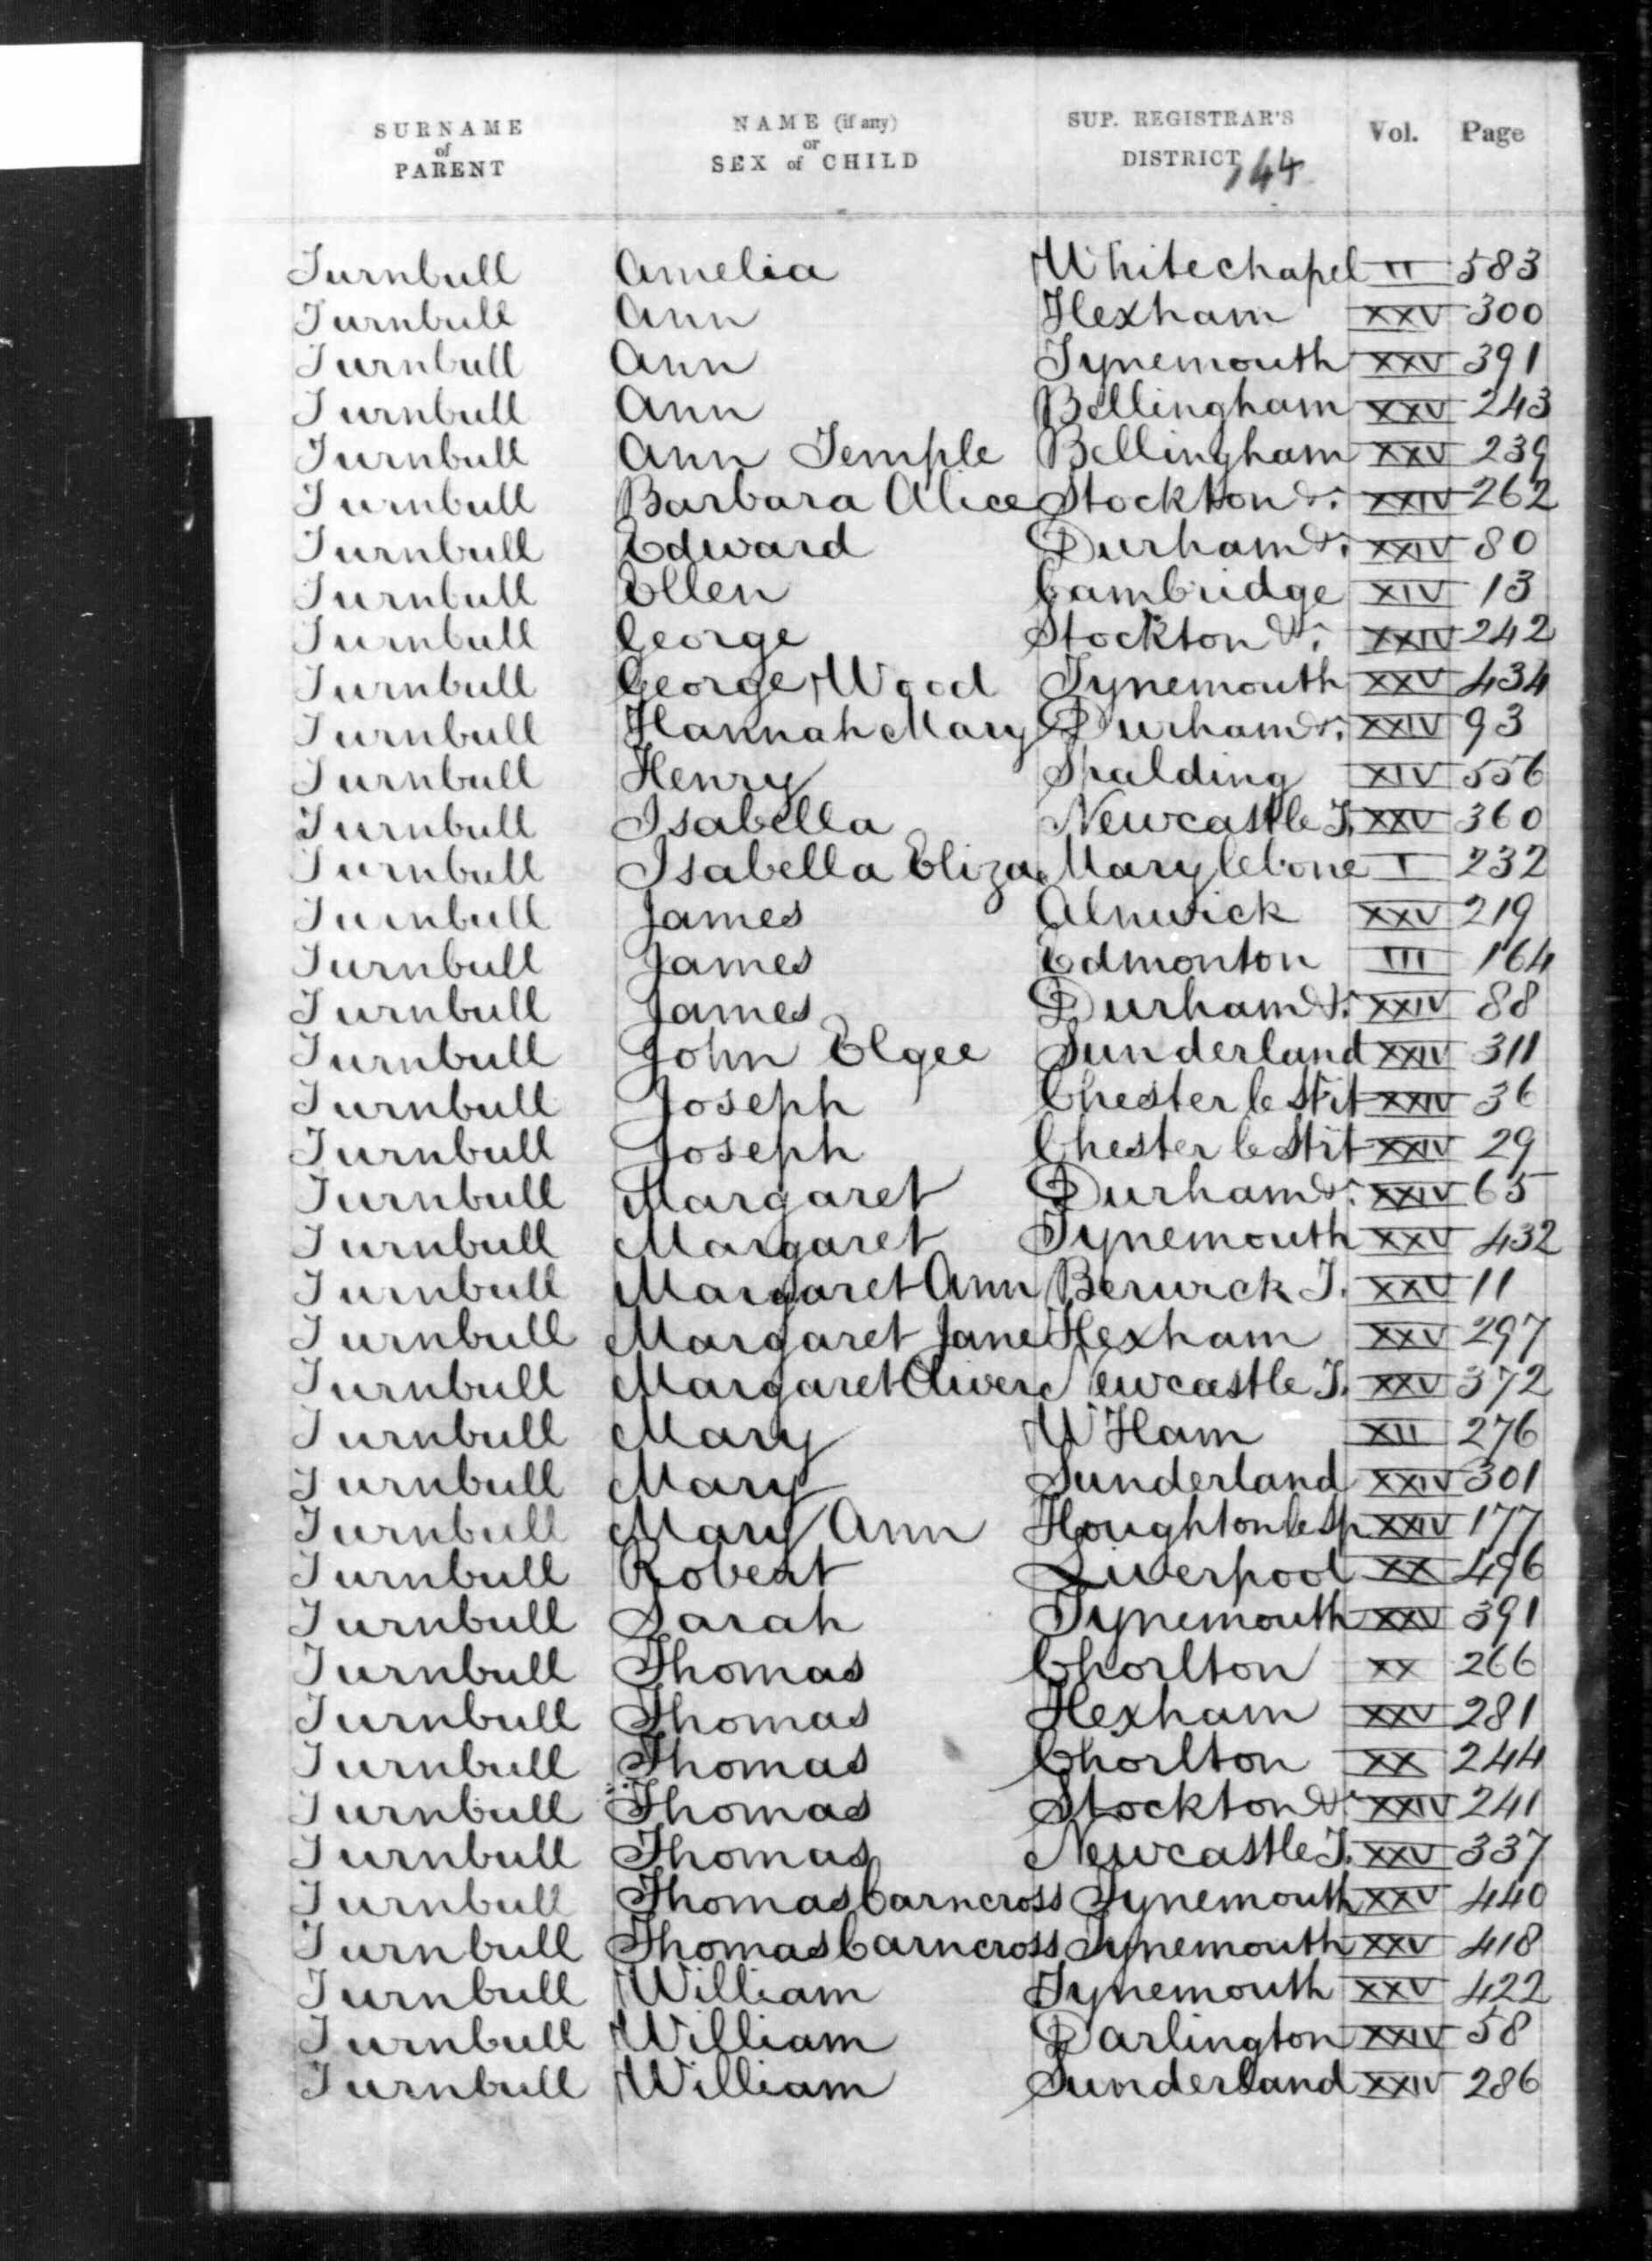 SURNAME of PARENT NAME (if any) or SEX of CHILD SUP. REGISTRAR'S DISTRICT Vol. Page
144
Turnbull Amelia Whitechapel II 583
Turnbull Ann Hexham XXV 300
Turnbull Ann Tynemouth XXV 391
Turnbull Ann Bellingham XXV 243
Turnbull Ann Temple Bellingham XXV 239
Turnbull Barbara Alice Stockton &. XXIV 262
Turnbull Edward Durham &. XXIV 80
Turnbull Ellen Cambridge XIV 13
Turnbull George Stockton &. XXIV 242
Turnbull George Wood Tynemouth XXV 434
Turnbull Hannah Mary Durham &. XXIV 93
Turnbull Henry Spalding XIV 556
Turnbull Isabella Newcastle T. XXV 360
Turnbull Isabella Eliza. Marylebone I 232
Turnbull James Alnwick XXV 219
Turnbull James Edmonton III 164
Turnbull James Durham &. XXIV 88
Turnbull John Elgee Sunderland XXIV 311
Turnbull Joseph Chester le Str't XXIV 36
Turnbull Joseph Chester le Str't XXIV 29
Turnbull Margaret Durham &. XXIV 65
Turnbull Margaret Tynemouth XXV 432
Turnbull Margaret Ann Berwick T. XXV 11
Turnbull Margaret Jane Hexham XXV 297
Turnbull Margaret Oliver Newcastle T. XXV 372
Turnbull Mary W Ham XII 276
Turnbull Mary Sunderland XXIV 301
Turnbull Mary Ann Houghton le Sp XXIV 177
Turnbull Robert Liverpool XX 496
Turnbull Sarah Tynemouth XXV 391
Turnbull Thomas Chorlton XX 266
Turnbull Thomas Hexham XXV 281
Turnbull Thomas Chorlton XX 244
Turnbull Thomas Stockton &. XXIV 241
Turnbull Thomas Newcastle T. XXV 337
Turnbull Thomas Carncross Tynemouth XXV 440
Turnbull Thomas Carncross Tynemouth XXV 418
Turnbull William Tynemouth XXV 422
Turnbull William Darlington XXIV 58
Turnbull William Sunderland XXIV 286